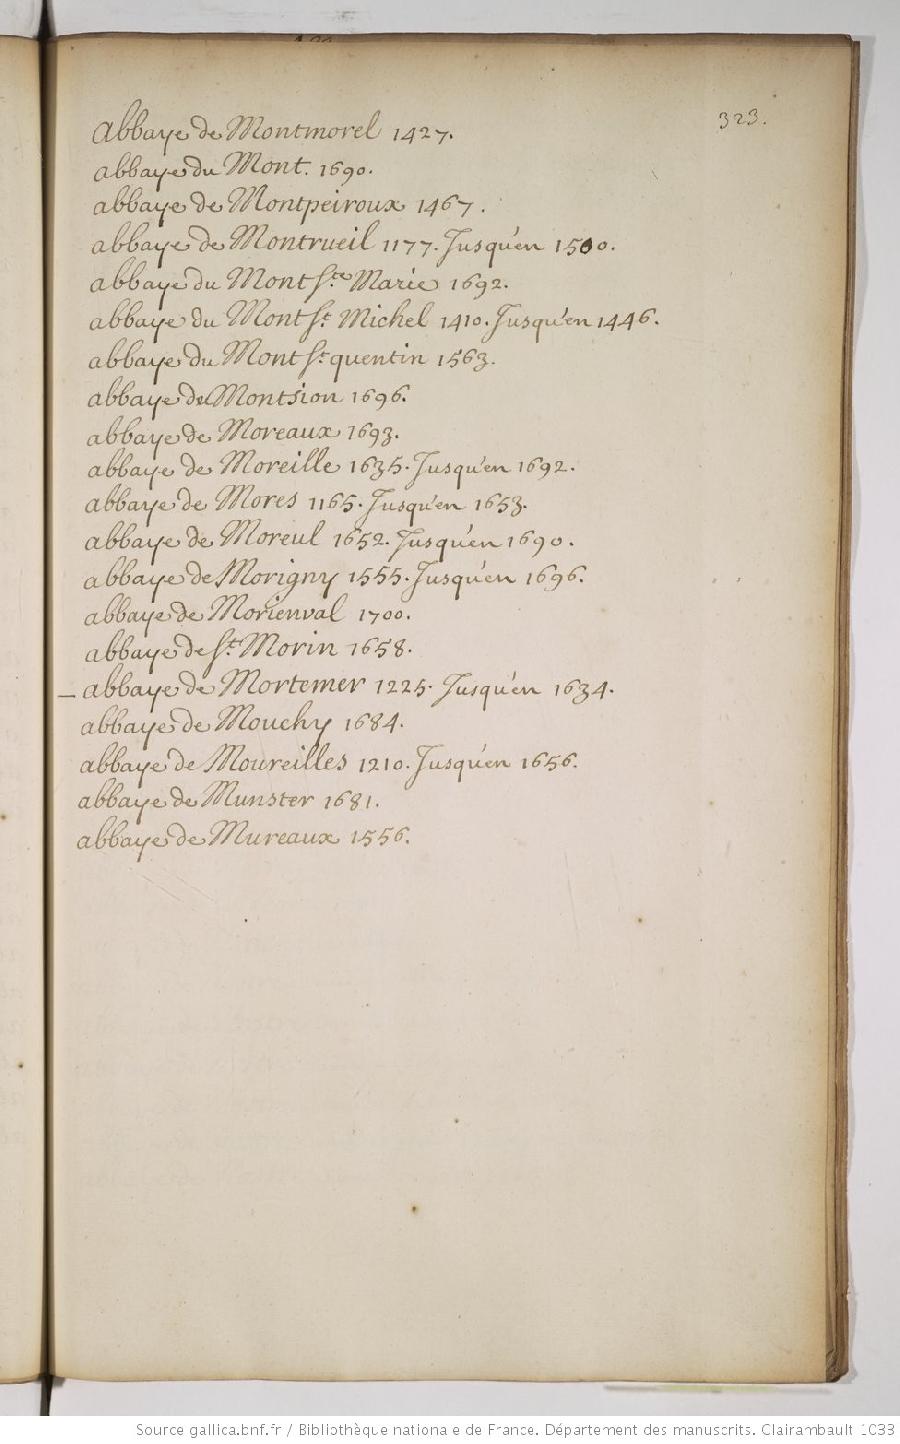 323.
abbaye de Montmorel 1427.
abbaye du Mont. 1690.
abbaye de Montpeiroux 1467.
abbaye de Montrueil 1177. Jusqu'en 1500.
abbaye du Mont Ste Marie 1692.
abbaye du Mont St Michel 1410. Jusqu'en 1446.
abbaye du Mont St quentin 1563.
abbaye de Montsion 1696.
abbaye de Moreaux 1693.
abbaye de Moreille 1635. Jusqu'en 1692.
abbaye de Mores 1165. Jusqu'en 1653.
abbaye de Moreul 1652. Jusqu'en 1690.
abbaye de Morigny 1555. Jusqu'en 1696.
abbaye de Morienval 1700.
abbaye de St Morin 1658.
_ abbaye de Mortemer 1225. Jusqu'en 1634.
abbaye de Mouchy 1684.
abbaye de Moureilles 1210. Jusqu'en 1656.
abbaye de Munster 1681.
abbaye de Mureaux 1556.
Source gallica.bnf.fr / Bibliothèque nationale de France. Département des manuscrits. Clairambault 1033